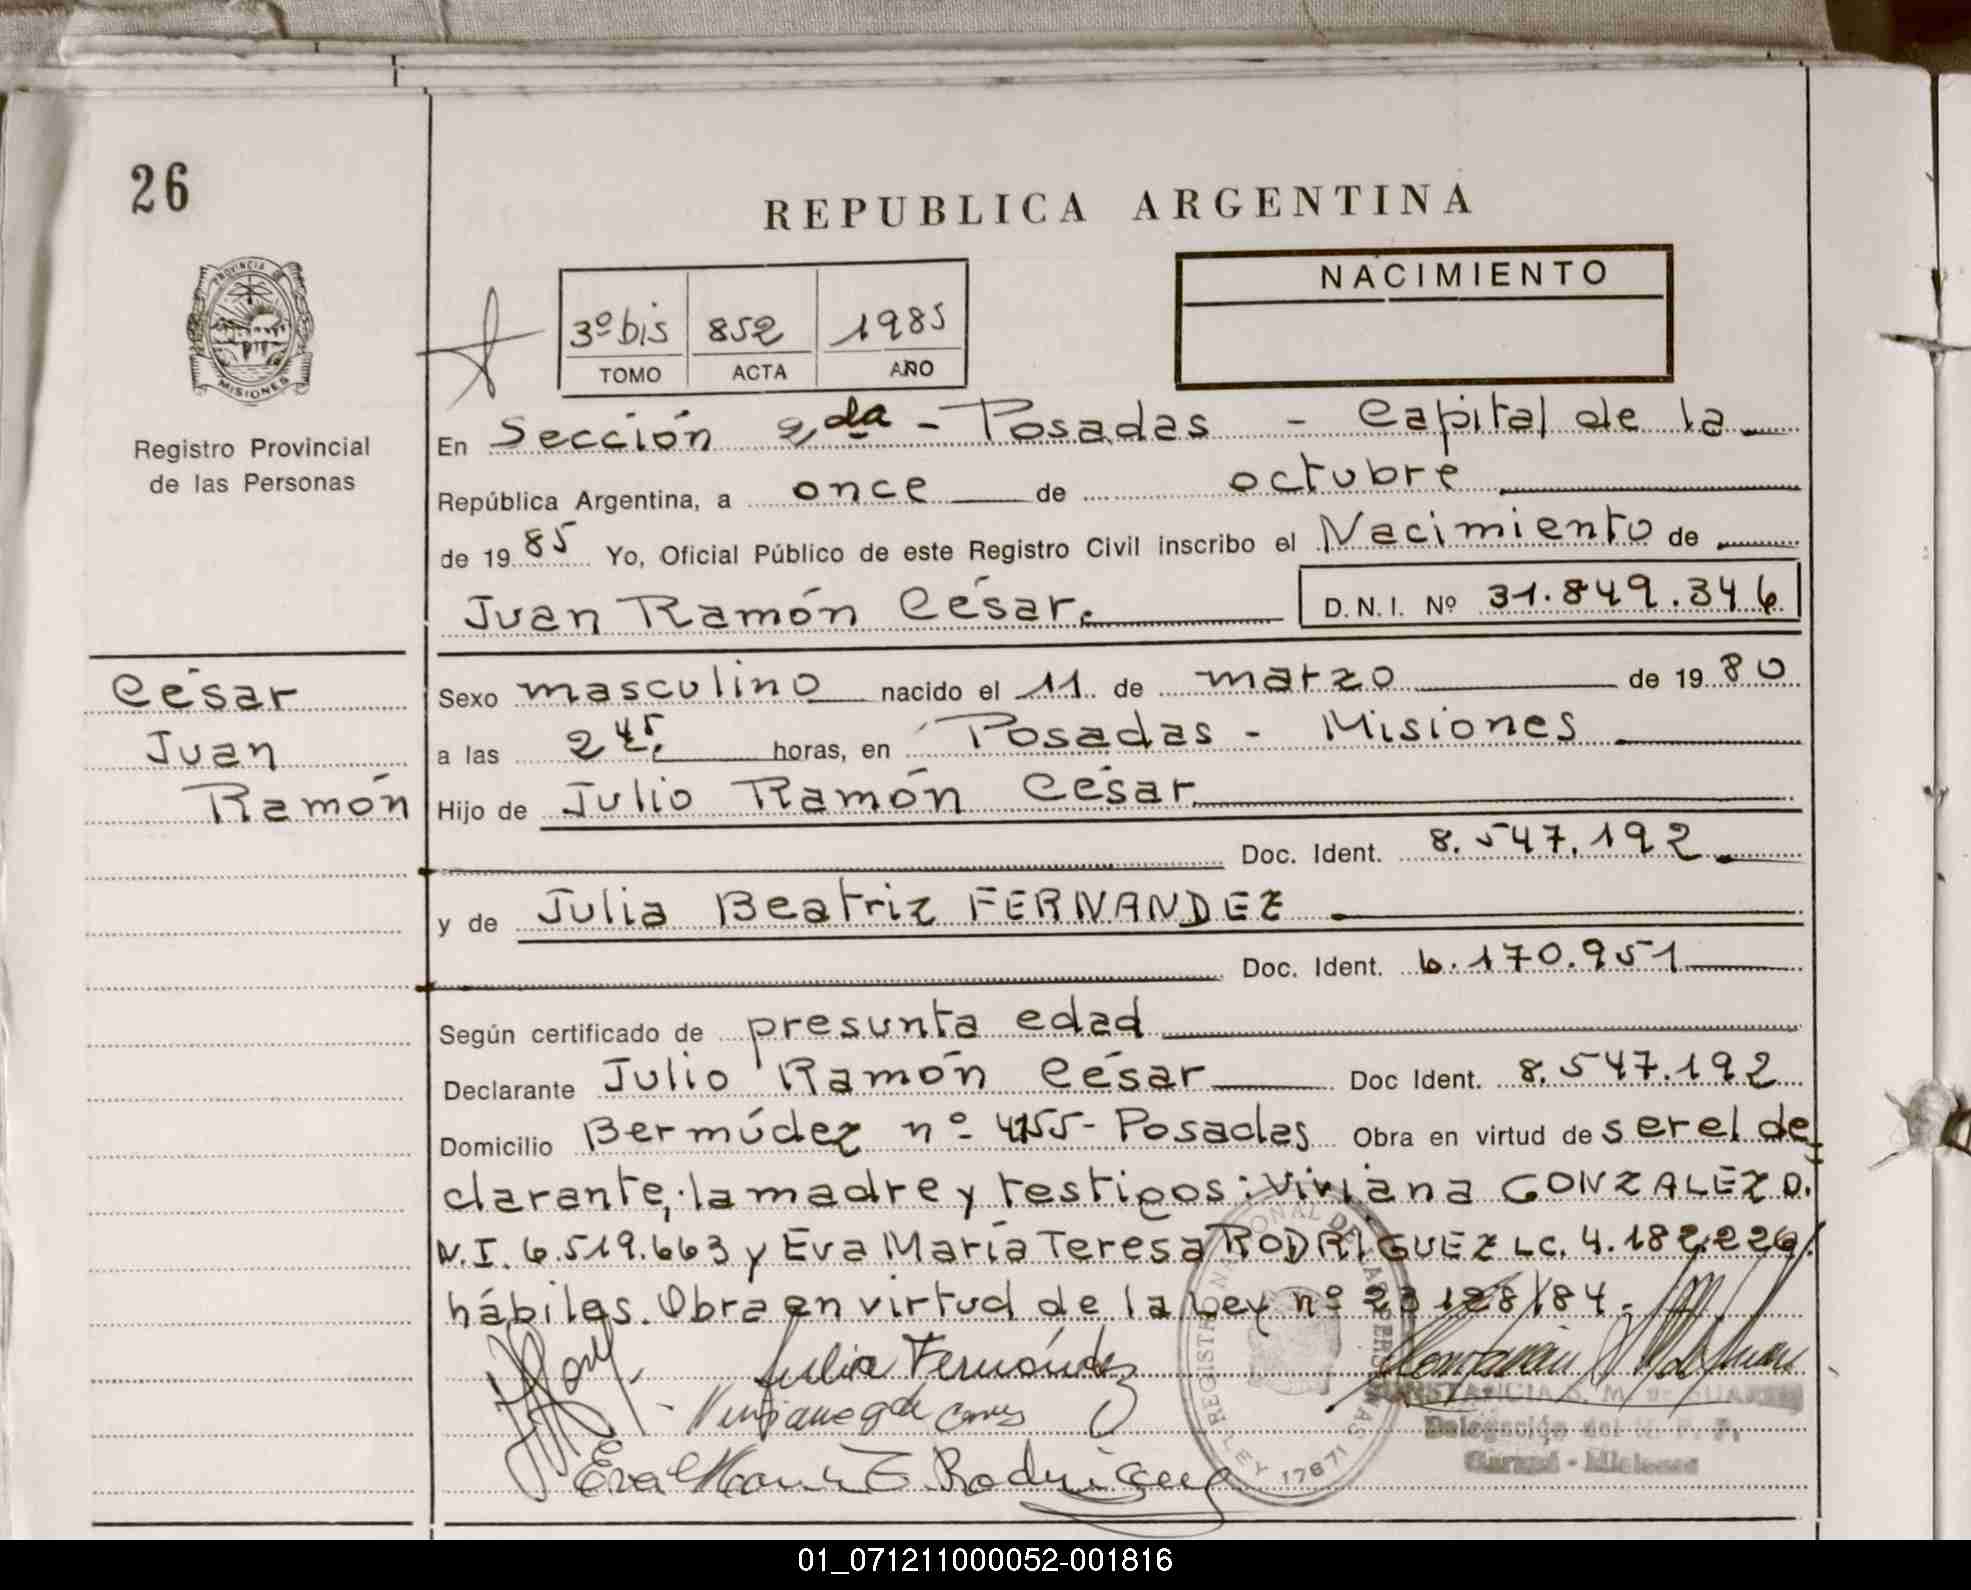 26
REPUBLICA ARGENTINA
PROVINCIA DE
MISIONES
Registro Provincial
de las Personas
3º bis 852 1985
TOMO ACTA AÑO
NACIMIENTO
En Sección 2da - Posadas - Capital de la
República Argentina, a once de octubre
de 1985 Yo, Oficial Público de este Registro Civil inscribo el Nacimiento de
Juan Ramón César. D.N.I. Nº 31.849.346
César
Juan
Ramón
Sexo masculino nacido el 11 de marzo de 1980
a las 2 45. horas, en Posadas - Misiones
Hijo de Julio Ramón César
Doc. Ident. 8.547.192
y de Julia Beatriz FERNANDEZ
Doc. Ident. 6.170.951
Según certificado de presunta edad
Declarante Julio Ramón César Doc Ident. 8.547.192
Domicilio Bermúdez nº 4155- Posadas Obra en virtud de ser el de
clarante, la madre y testigos: Viviana GONZALEZ D.
N.I. 6.519.663 y Eva María Teresa RODRÍGUEZ LC. 4.182.226/
hábiles. Obra en virtud de la Ley nº 23128/84.-
Julia Fernández
Eva María T. Rodriguez
REGISTRO NACIONAL DE LAS PERSONAS
LEY 17671
Delegación del R. P. P.
Garupá - Misiones
01_071211000052-001816